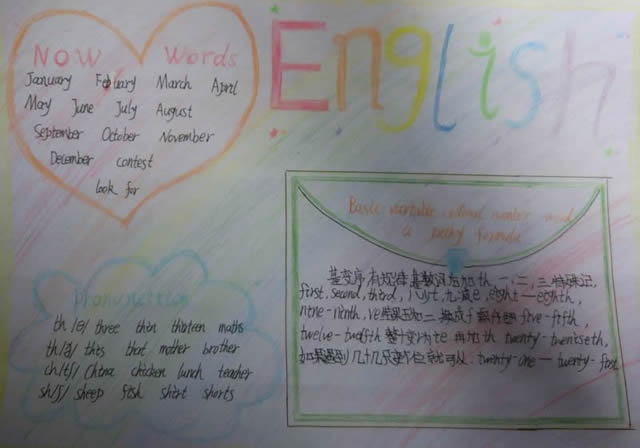 English
Now Words
January February March April
May June July August
September October November
December contest
look for
Basic
a formula
基变序,有规律,基数词后加th,一,二,三特殊记,
first, second, third, 八少t,九减e, eight—eighth,
nine-ninth, ve f five-fifth,
twelve-twelfth 整十变 ie 再加th twenty-twentieth,
几十几只变个位就可以. twenty-one—twenty-first
th /θ/ three thin thirteen maths
th/ð/ this that mother brother
ch/tʃ/ China chicken lunch teacher
sh/ʃ/ sheep fish shirt shorts